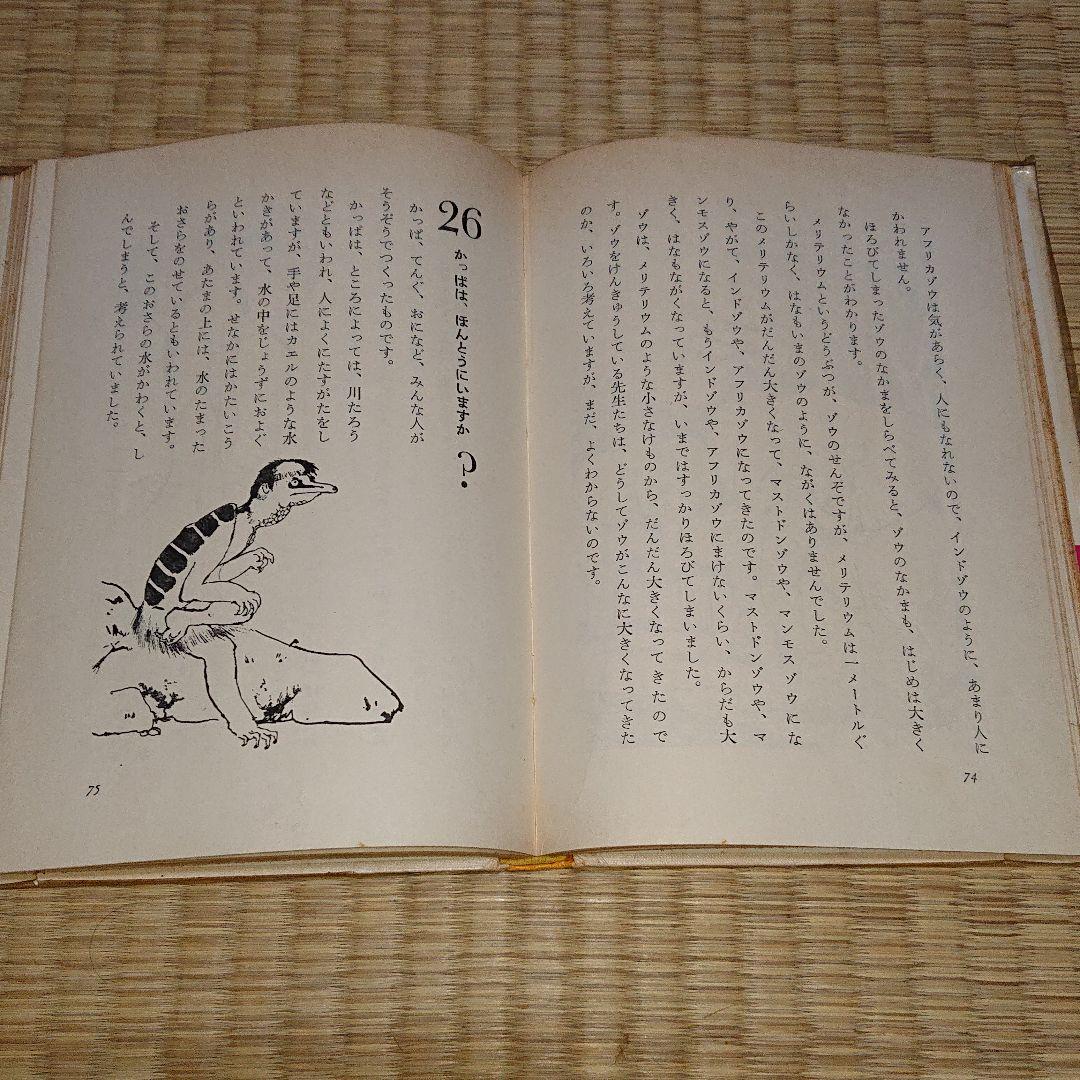 アフリカゾウは気があらく、人にもなれないので、インドゾウのように、あまり人に
かわれません。
ほろびてしまったゾウのなかまをしらべてみると、ゾウのなかまも、はじめは大きく
なかったことがわかります。
メリテリウムというどうぶつが、ゾウのせんぞですが、メリテリウムは一メートルぐ
らいしかなく、はなもいまのゾウのように、ながくはありませんでした。
このメリテリウムがだんだん大きくなって、マストドンゾウや、マンモスゾウにな
り、やがて、インドゾウや、アフリカゾウになってきたのです。マストドンゾウや、マ
ンモスゾウになると、もうインドゾウや、アフリカゾウにまけないくらい、からだも大
きく、はなもながくなっていますが、いまではすっかりほろびてしまいました。
ゾウは、メリテリウムのような小さなけものから、だんだん大きくなってきたので
す。ゾウをけんきゅうしている先生たちは、どうしてゾウがこんなに大きくなってきた
のか、いろいろ考えていますが、まだ、よくわからないのです。
74
26 かっぱは、ほんとうにいますか?
かっぱ、てんぐ、おになど、みんな人が
そうぞうでつくったものです。
かっぱは、ところによっては、川たろう
などともいわれ、人によくにたすがたをし
ていますが、手や足にはカエルのような水
かきがあって、水の中をじょうずにおよぐ
といわれています。せなかにはかたいこう
らがあり、あたまの上には、水のたまった
おさらをのせているともいわれています。
そして、このおさらの水がかわくと、し
んでしまうと、考えられていました。
75